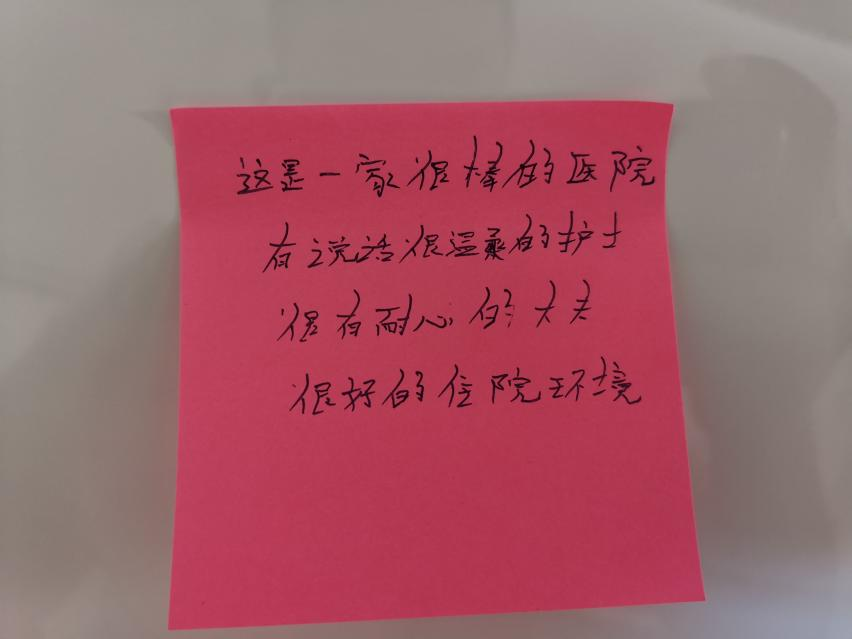 这是一家很棒的医院
有说话很温柔的护士
很有耐心的大夫
很好的住院环境